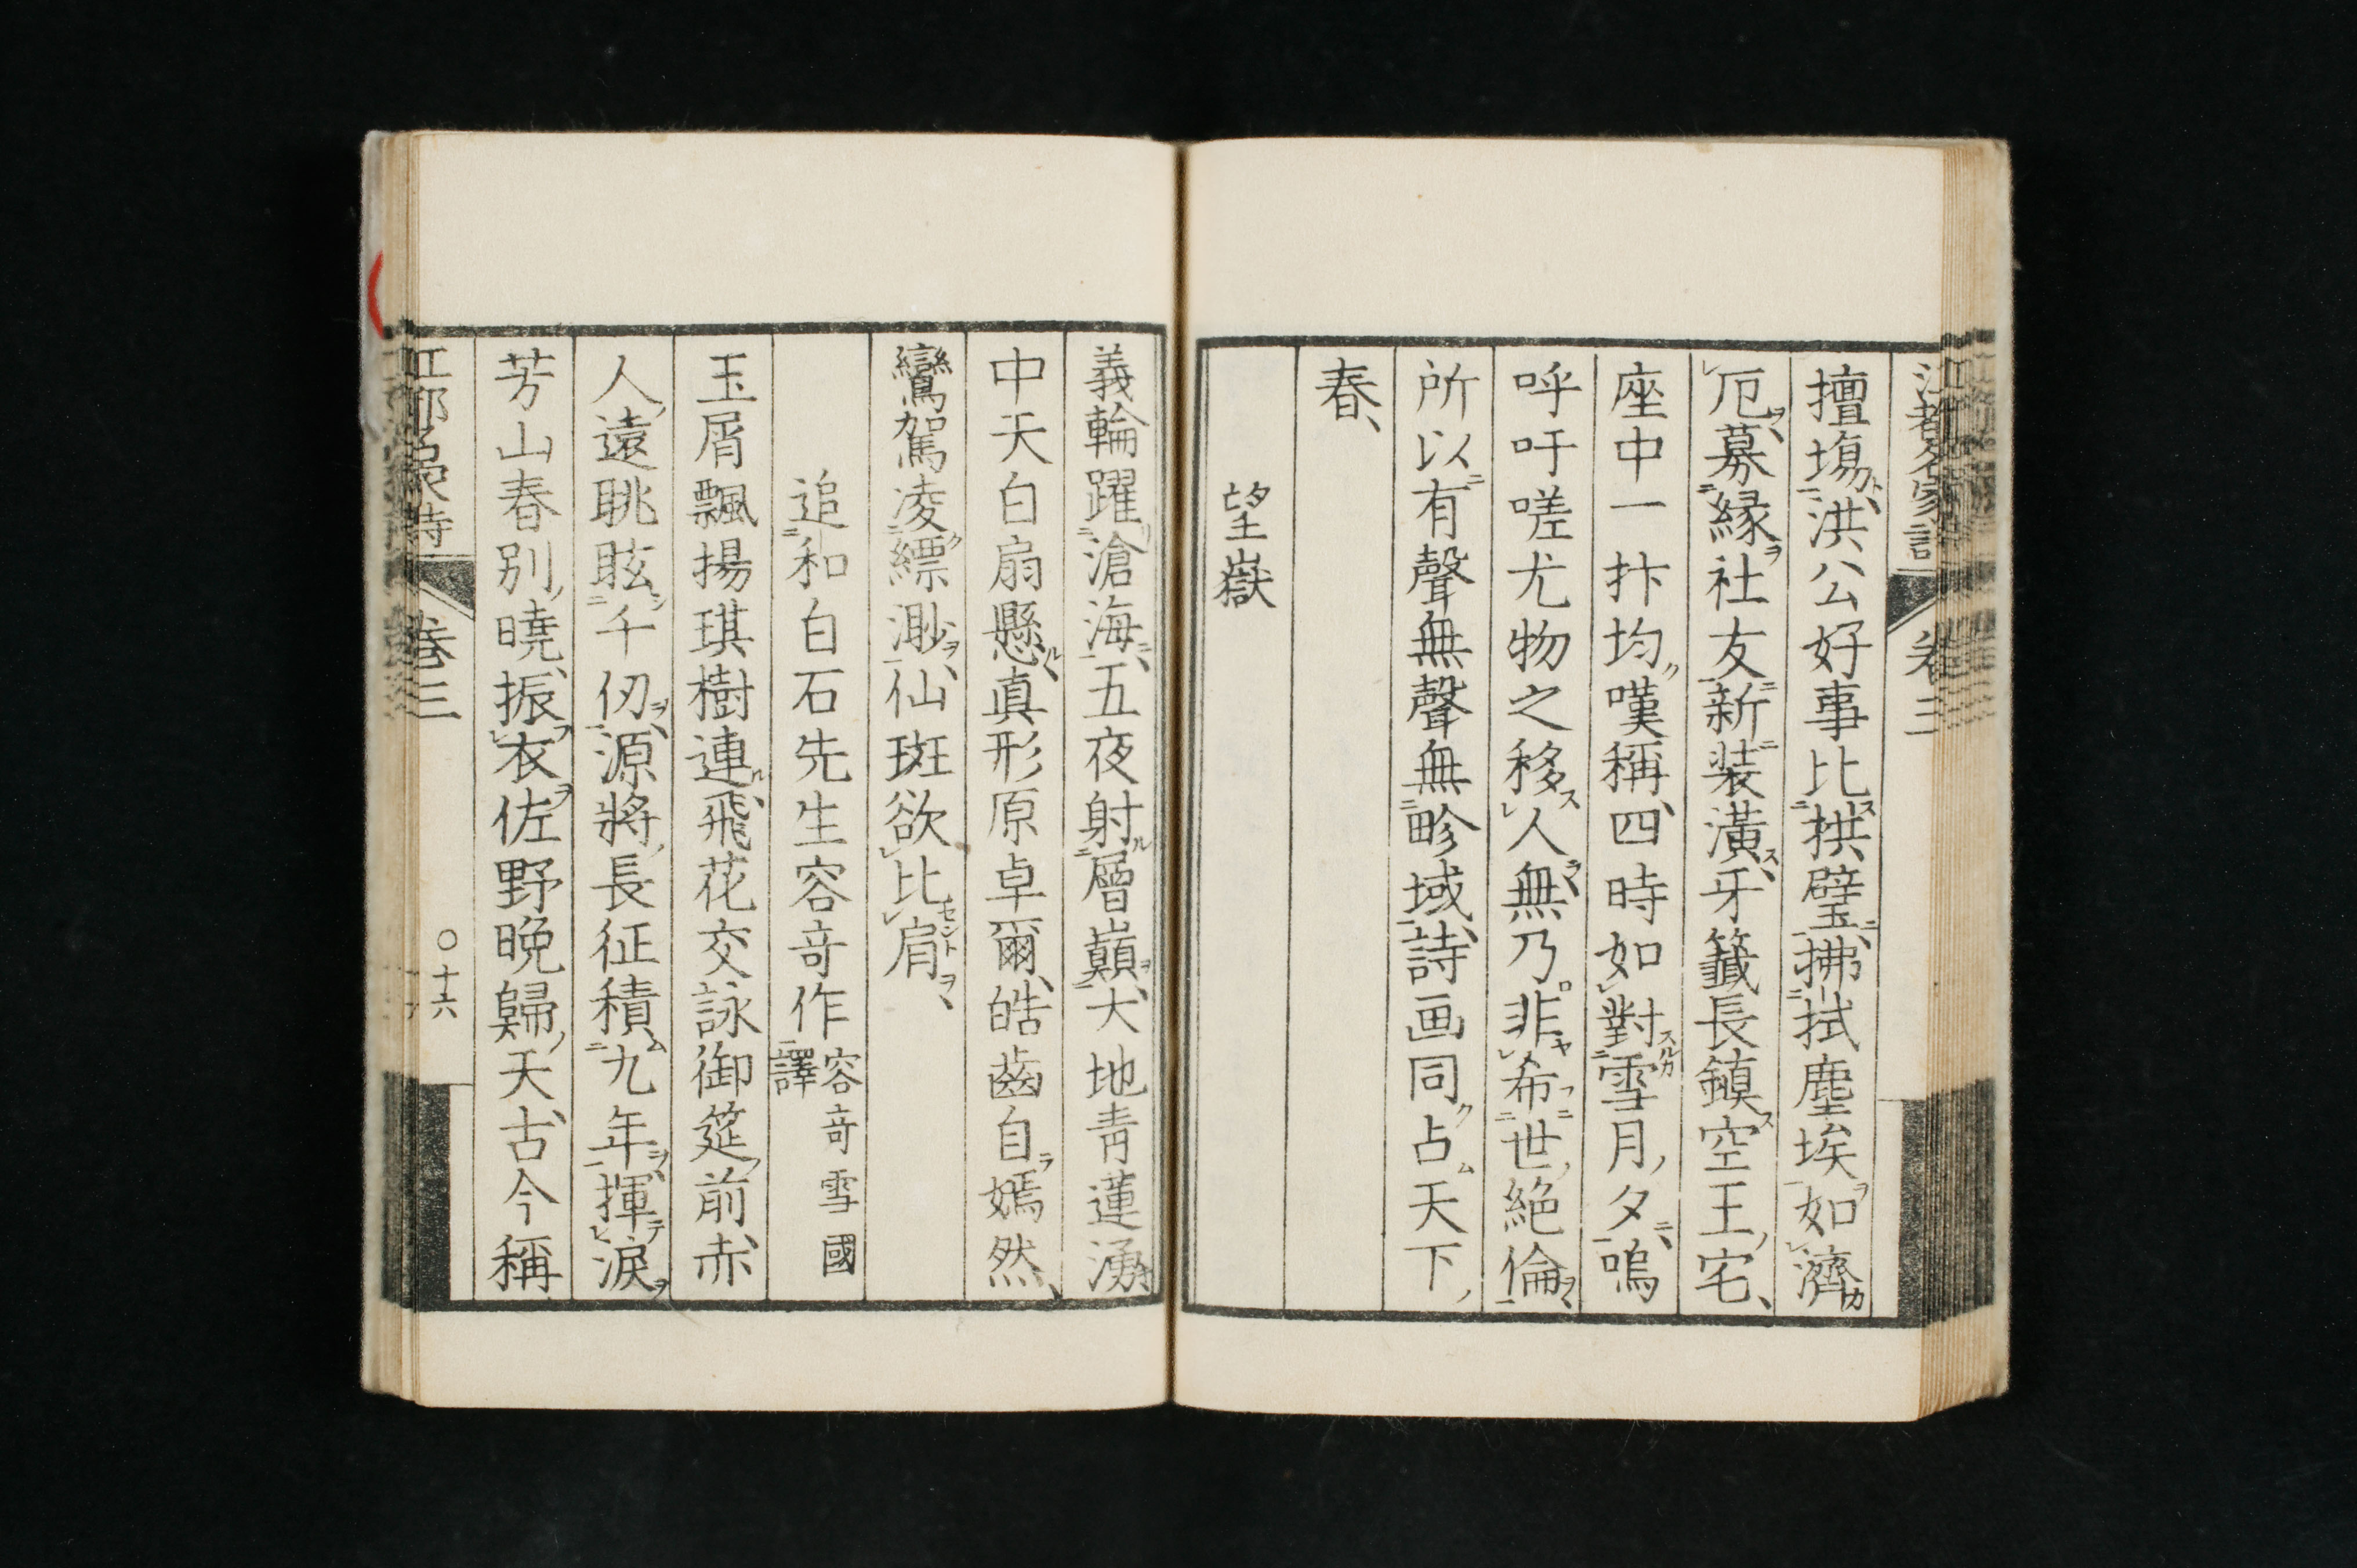 江都名家詩 卷三
擅塲、洪公好事比拱璧、拂拭塵埃如濟
厄、募緣社友新装潢、牙籤長鎮空王宅、
座中一抃均嘆稱、四時如對雪月夕、嗚
呼吁嗟尤物之移人、無乃非希世絶倫、
所以有聲無聲無畛域、詩画同占天下
春、
望嶽
義輪躍滄海、五夜射層巔、大地青蓮湧
中天白扇懸、真形原卓爾、皓齒自嫣然、
鸞駕凌縹渺、仙斑欲比肩、
追和白石先生容竒作 容竒雪國譯
玉屑飄揚琪樹連、飛花交詠御筵前、赤
人遠眺眩千仞、源將長征積九年、揮淚
芳山春別曉、振衣佐野晩歸天、古今稱
卷三 〇十六